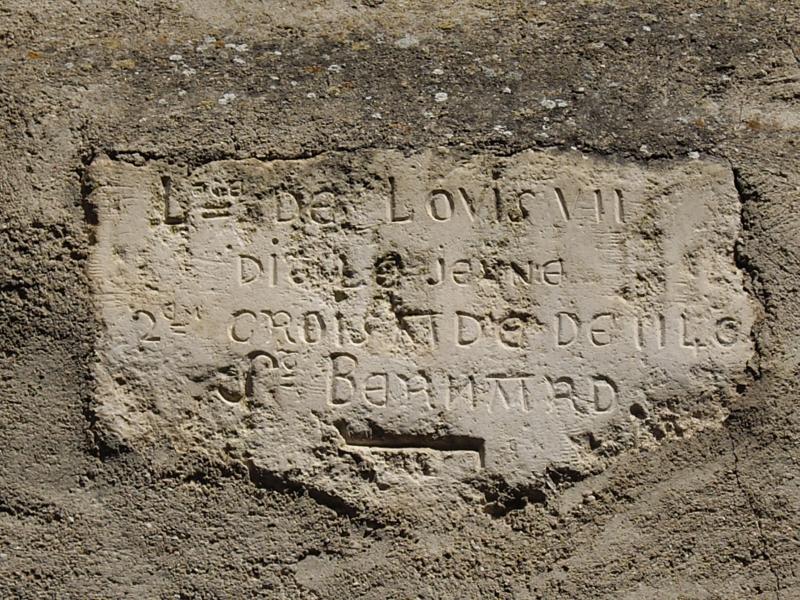 DE LOVIS VII
DIT LE JEUNE
2EM CROISADE DE 1148
ST BERNARD